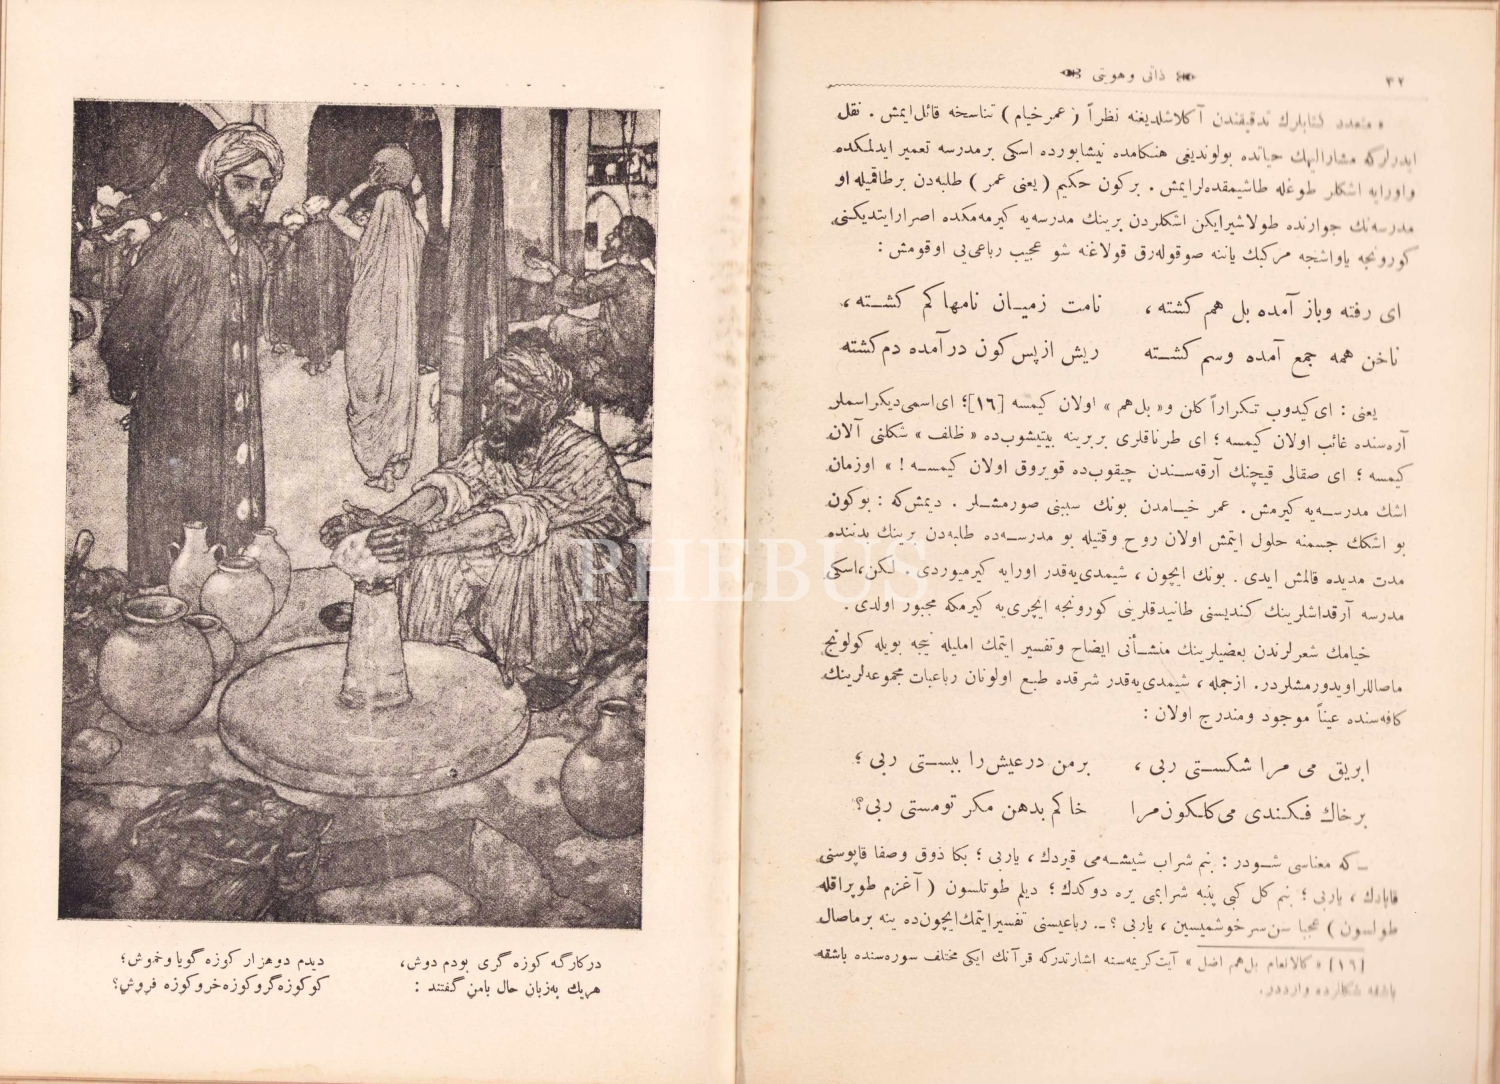 ٣٢
ذاتی وهویتی
« متعدد كتابلرك تدقيقندن آكلاشلديغنه نظراً ( عمرخيام ) تناسخه قائل‌ايمش . نقل
ايدرلركه مشاراليهك حياتده بولونديغی هنكامده نيشابورده اسكی برمدرسه تعمير ايدلمكده
واورايه اشكلر طوغله طاشيمقده‌لرايمش . بركون حكيم ( يعنی عمر ) طلبه‌دن برطاقميله او
مدرسه‌نك جوارنده طولاشيرايكن اشكلردن برينك مدرسه‌يه كيرمه‌مكده اصرارايتديكنی
كورونجه ياواشجه مركبك ياننه صوقوله‌رق قولاغنه شو عجيب رباعی‌يی اوقومش :
ای رفته وباز آمده بل هم كشته ، نامت زميـان نامهاكم كشـته ،
ناخن همه جمع آمده وسم كشـته ريش ازپس كون درآمده دم كشته
يعنی : ای كيدوب تكراراً كلن و« بل‌هم » اولان كيمسه [١٦]؛ ای‌اسمی‌ديكراسملر
آره‌سنده غائب اولان كيمسه ؛ ای طرناقلری بربرينه بيتيشوب‌ده « ظلف » شكلنی آلان
كيمسه ؛ ای صقالی قيچنك آرقه‌سـندن چيقوب‌ده قويروق اولان كيمسـه ! » اوزمان
اشك مدرسـه‌يه كيرمش . عمر خيـامدن بونك سببنی صورمشـلر . ديمش‌كه : بوكون
بو اشكك جسمنه حلول ايتمش اولان روح وقتيله بو مدرسـه‌ده طلبه‌دن برينك بدننده
مدت مديده قالمش ايدی . بونك ايچون ، شيمدی‌يه‌قدر اورايه كيرميوردی . لكن،اسكی
مدرسه آرقداشلرينك كنديسنی طانيدقلرينی كورونجه ايچری‌يه كيرمكه مجبور اولدی .
خيامك شعرلرندن بعضيلرينك منشـأنی ايضاح وتفسير ايتمك امليله نيجه بويله كولونج
ماصاللراويدورمشلردر. ازجمله ، شيمدی‌يه‌قدر شرقده طبع اولونان رباعيات مجموعه‌لرينك
كافه‌سنده عيناً موجود ومندرج اولان :
ابريق می مرا شكستی ربی ، برمن درعيش‌را ببستی ربی ؛
برخاك فكندی می كلكون‌مرا خاكم بدهن مكر تومستی ربی؟
ـ كه معناسی شـودر : بنم شراب شيشه‌می قيردك ، ياربی ؛ بكا ذوق وصفا قاپوسنی
قاپادك ، ياربی ؛ بنم كل كبی پنبه شرابمی يره دوكدك ؛ ديلم طوتلسون ( آغزم طوپراقله
طولسون ) عجبا سن‌سرخوشميسين ، ياربی ؟ ـ. رباعيسنی تفسيرايتمك‌ايچون‌ده ينه برماصال
[١٦] « كالانعام بل‌هم اضل » آيت‌كريمه‌سنه اشارتدركه قرآنك ايكی مختلف سوره‌سنده باشقه
باشقه شكللرده وارددر.
دركارگه كوزه گری بودم دوش، ديدم دوهزار كوزه گويا وخموش؛
هريك به‌زبان حال بامن گفتند : كوكوزه‌گروكوزه‌خروكوزه فروش؟
PHEBUS